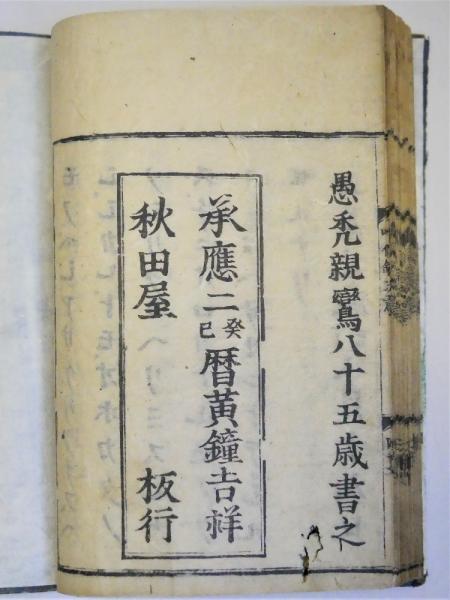 愚禿親鸞八十五歳書之
承應二癸巳暦黄鐘吉祥
秋田屋 板行